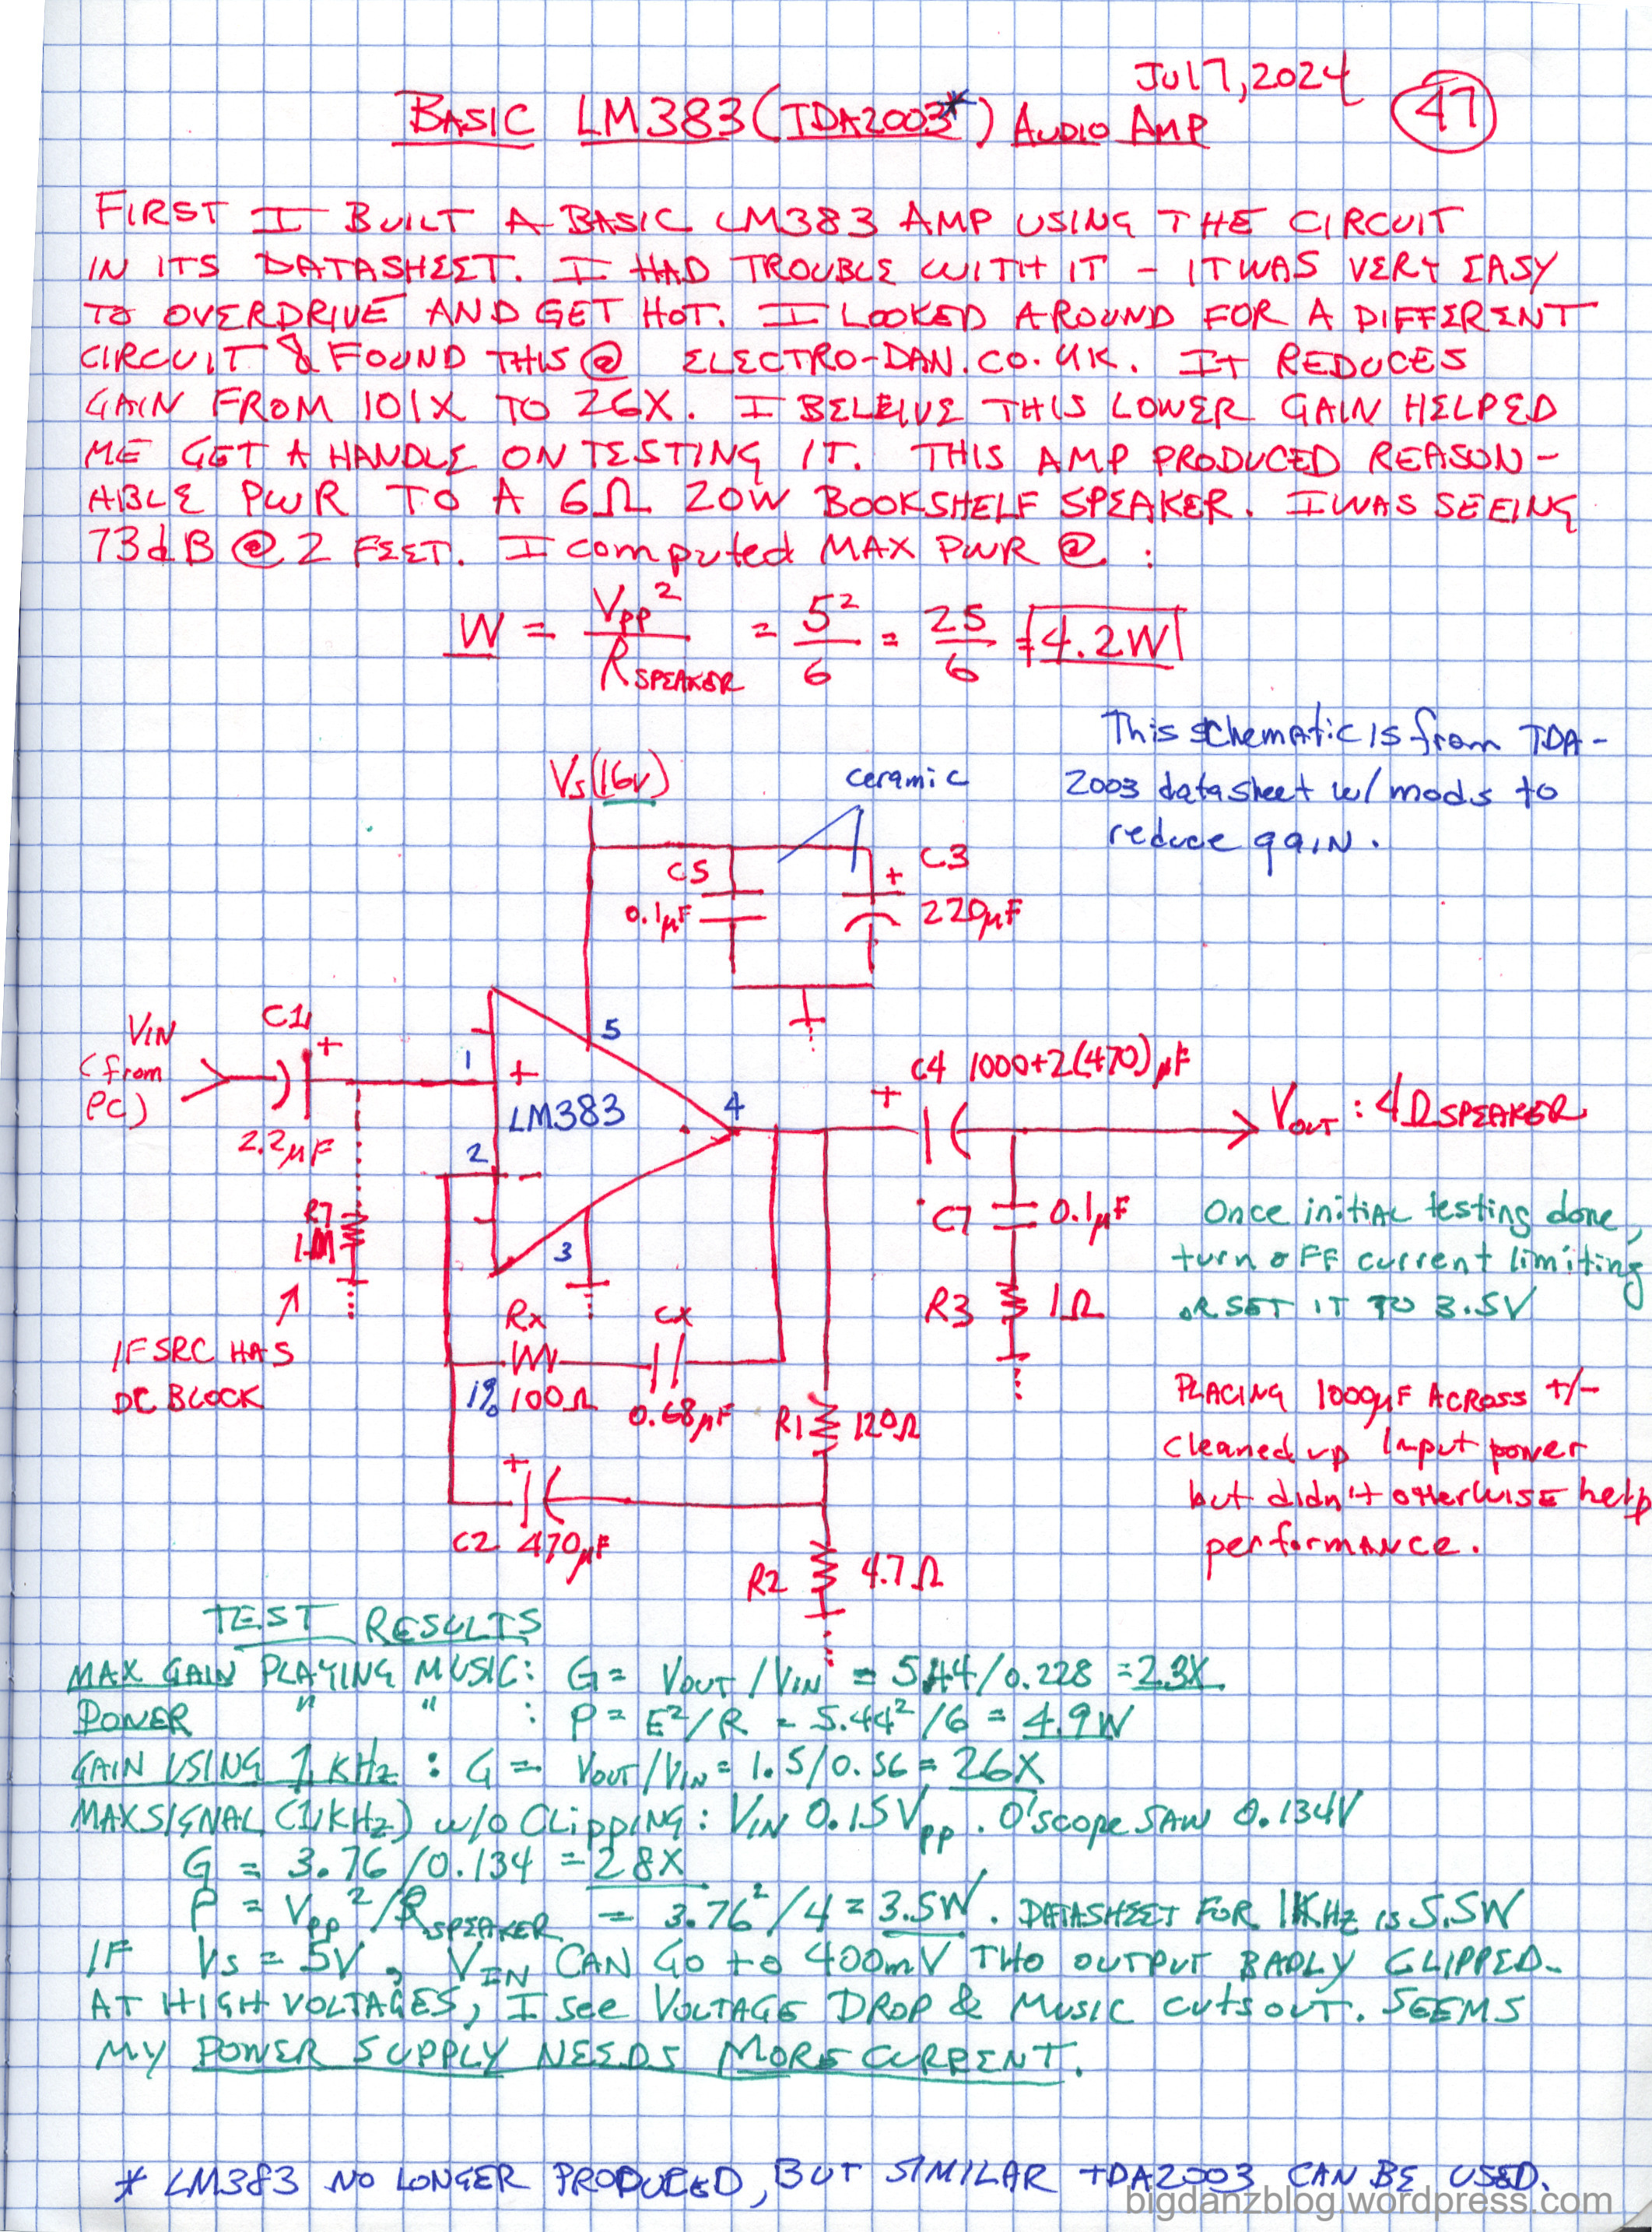 JUL 7, 2024
47
BASIC LM383 (TDA2003*) AUDIO AMP
FIRST I BUILT A BASIC LM383 AMP USING THE CIRCUIT
IN ITS DATASHEET. I HAD TROUBLE WITH IT - IT WAS VERY EASY
TO OVERDRIVE AND GET HOT. I LOOKED AROUND FOR A DIFFERENT
CIRCUIT & FOUND THIS @ ELECTRO-DAN.CO.UK. IT REDUCES
GAIN FROM 101X TO 26X. I BELEIVE THIS LOWER GAIN HELPED
ME GET A HANDLE ON TESTING IT. THIS AMP PRODUCED REASON-
ABLE PWR TO A 6Ω 20W BOOKSHELF SPEAKER. I WAS SEEING
73dB @ 2 FEET. I computed MAX PWR @ :
W = Vpp²/R SPEAKER = 5²/6 = 25/6 = 4.2W
This schematic is from TDA-
2003 datasheet w/ mods to
reduce gain.
Vs (16v)
ceramic
C5
0.1µF
C3
+
220µF
VIN
(from
PC)
C1
+
2.2µF
1
+
5
LM383
2
-
3
4
C4 1000+2(470)µF
+
VOUT : 4Ω SPEAKER
R7
1M
IF SRC HAS
DC BLOCK
C7 0.1µF
R3 1Ω
Once initial testing done,
turn OFF current limiting
OR SET IT TO 3.5V
Rx
1% 100Ω
Cx
0.68µF
R1 120Ω
+
C2 470µF
R2 4.7Ω
PLACING 1000µF ACROSS +/-
cleaned up Input power
but didn't otherwise help
performance.
TEST RESULTS
MAX GAIN PLAYING MUSIC: G = VOUT/VIN = 5.44/0.228 = 23X
POWER " " : P = E²/R = 5.44²/6 = 4.9W
GAIN USING 1 KHz : G = VOUT/VIN = 1.5/0.56 = 26X
MAX SIGNAL (1KHz) w/o CLipping: VIN 0.15Vpp. O'scope SAW 0.134V
G = 3.76/0.134 = 28X
P = Vpp²/R SPEAKER = 3.76²/4 = 3.5W. DATASHEET FOR 1KHz is 5.5W
IF Vs = 5V, VIN CAN GO to 400mV THO OUTPUT BADLY CLIPPED.
AT HIGH VOLTAGES, I see VOLTAGE DROP & MUSIC CUTS OUT. SEEMS
MY POWER SUPPLY NEEDS MORE CURRENT.
* LM383 NO LONGER PRODUCED, BUT SIMILAR TDA2003 CAN BE USED.
bigdanzblog.wordpress.com